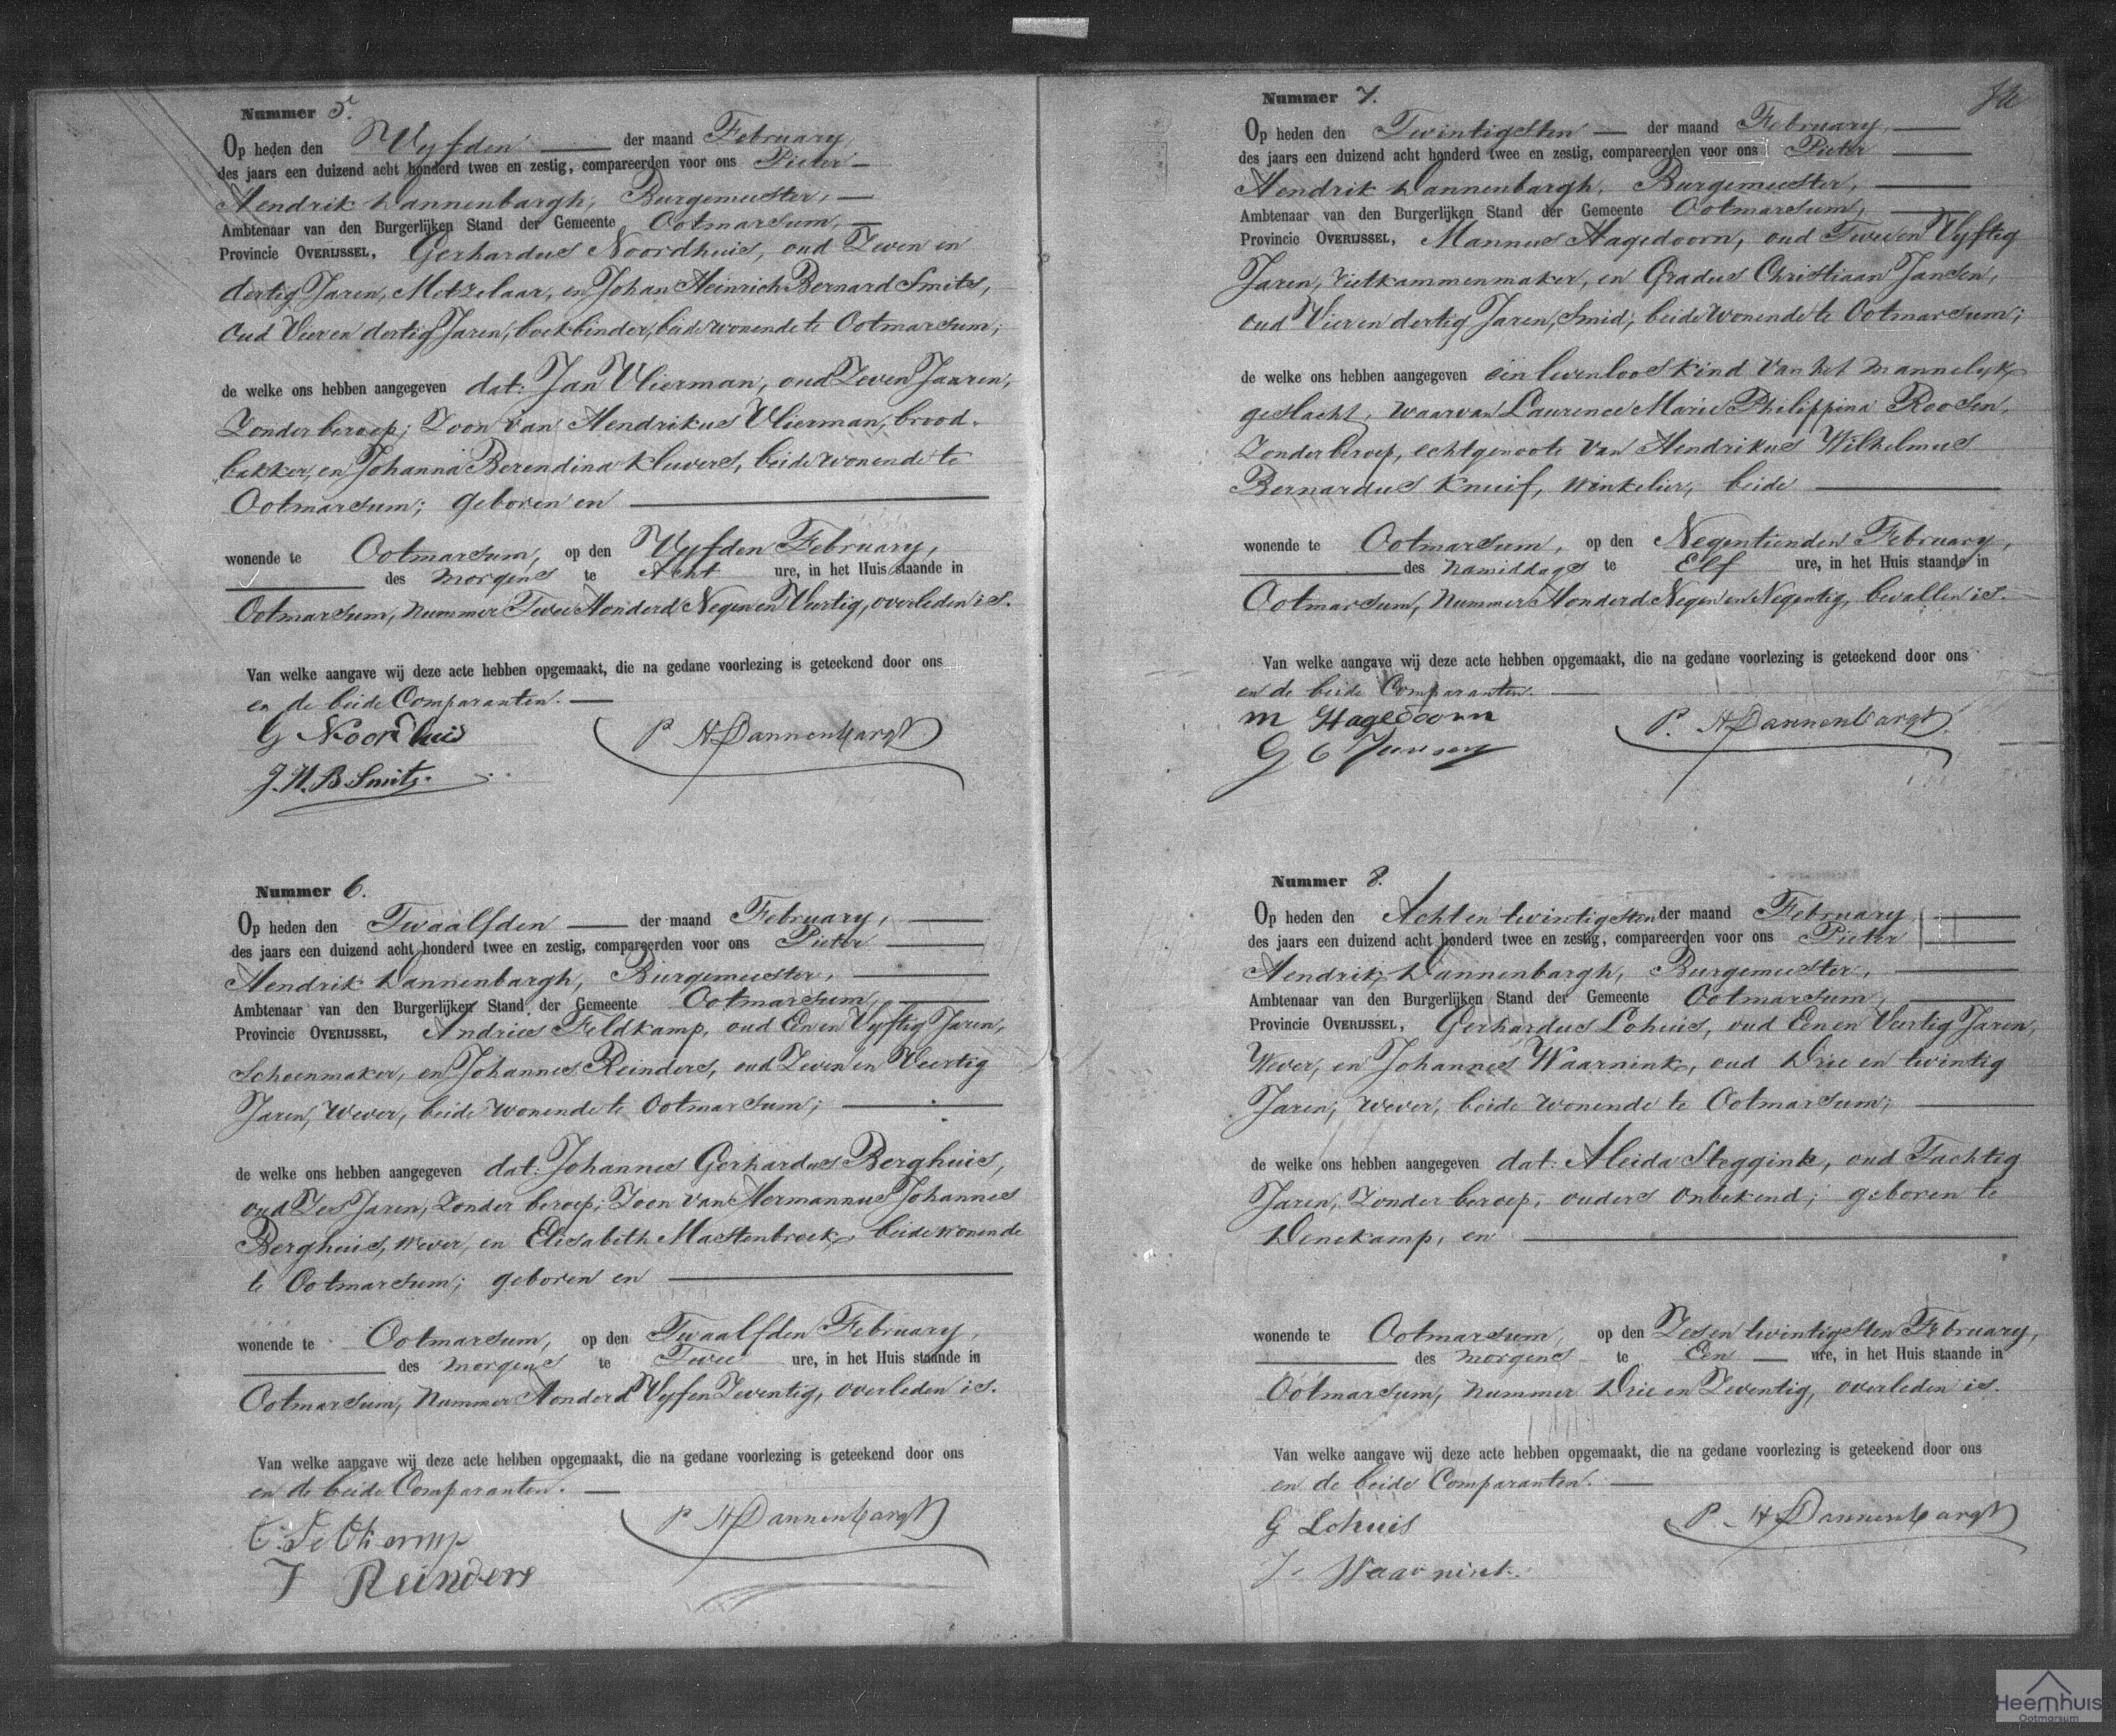 Nummer 5.
Op heden den Vyfden der maand February,
des jaars een duizend acht honderd twee en zestig, compareerden voor ons Pieter
Hendrik Dannenbargh, Burgemeester,
Ambtenaar van den Burgerlijken Stand der Gemeente Ootmarsum,
Provincie OVERIJSSEL, Gerhardus Noordhuis, oud Zeven en
dertig Jaren, Metzelaar, en Johan Heinrich Bernard Smits,
oud Vier en dertig Jaren, boekbinder, beide wonende te Ootmarsum;
de welke ons hebben aangegeven dat: Jan Vlierman, oud Zeven Jaaren,
Zonder beroep; Zoon van Hendrikus Vlierman, brood-
bakker, en Johanna Berendina Kluvers, beide wonende te
Ootmarsum; geboren en
wonende te Ootmarsum, op den Vyfden February,
des morgens te Acht ure, in het Huis staande in
Ootmarsum, nummer Twee Honderd Negen en Veertig, overleden is.
Van welke aangave wij deze acte hebben opgemaakt, die na gedane voorlezing is geteekend door ons
en de beide Comparanten.
G Noordhuis P H Dannenbargh
J. H. B. Smits.
Nummer 6.
Op heden den Twaalfden der maand February,
des jaars een duizend acht honderd twee en zestig, compareerden voor ons Pieter
Hendrik Dannenbargh, Burgemeester,
Ambtenaar van den Burgerlijken Stand der Gemeente Ootmarsum,
Provincie OVERIJSSEL, Andries Feldkamp, oud Een en Vyftig Jaren,
Schoenmaker, en Johannes Reinders, oud Zeven en Veertig
Jaren, Wever, beide wonende te Ootmarsum;
de welke ons hebben aangegeven dat: Johannes Gerhardus Berghuis,
oud Zes Jaren, Zonder beroep; Zoon van Hermannus Johannes
Berghuis, wever, en Elisabith Mastenbroek, beide wonende
te Ootmarsum; geboren en
wonende te Ootmarsum, op den Twaalfden February,
des morgens te Twee ure, in het Huis staande in
Ootmarsum, nummer Honderd Vyf en Zeventig, overleden is.
Van welke aangave wij deze acte hebben opgemaakt, die na gedane voorlezing is geteekend door ons
en de beide Comparanten.
P H Dannenbargh
J Reinders
Nummer 7.
Op heden den Twintigsten der maand February,
des jaars een duizend acht honderd twee en zestig, compareerden voor ons Pieter
Hendrik Dannenbargh, Burgemeester,
Ambtenaar van den Burgerlijken Stand der Gemeente Ootmarsum,
Provincie OVERIJSSEL, Mannus Hagedoorn, oud Twee en Vyftig
Jaren, rietkammenmaker, en Gradus Christiaan Jansen,
oud Vier en dertig Jaren, Smid, beide wonende te Ootmarsum;
de welke ons hebben aangegeven een levenloos kind van het mannelyk
geslacht, waarvan Laurence Marie Philippina Roosen,
Zonder beroep, echtgenoote van Hendrikus Wilhelmus
Bernardus Kneif, Winkelier, beide
wonende te Ootmarsum, op den Negentienden February,
des namiddags te Elf ure, in het Huis staande in
Ootmarsum, nummer Honderd Negen en Negentig, bevallen is.
Van welke aangave wij deze acte hebben opgemaakt, die na gedane voorlezing is geteekend door ons
en de beide Comparanten.
M Hagedoorn P. H Dannenbargh
G C Jansen
Nummer 8.
Op heden den Acht en twintigsten der maand February
des jaars een duizend acht honderd twee en zestig, compareerden voor ons Pieter
Hendrik Dannenbargh, Burgemeester,
Ambtenaar van den Burgerlijken Stand der Gemeente Ootmarsum,
Provincie OVERIJSSEL, Gerhardus Lohuis, oud Een en Veertig Jaren,
Wever, en Johannes Waarnink, oud Drie en twintig
Jaren, wever, beide wonende te Ootmarsum;
de welke ons hebben aangegeven dat: Aleida Steggink, oud Tachtig
Jaren, Zonder beroep, ouders onbekend; geboren te
Denekamp, en
wonende te Ootmarsum, op den Zes en twintigsten February,
des morgens te Een ure, in het Huis staande in
Ootmarsum, nummer Drie en Zeventig, overleden is.
Van welke aangave wij deze acte hebben opgemaakt, die na gedane voorlezing is geteekend door ons
en de beide Comparanten.
G Lohuis P. H Dannenbargh
J. Waarnink.
Heemhuis
Ootmarsum